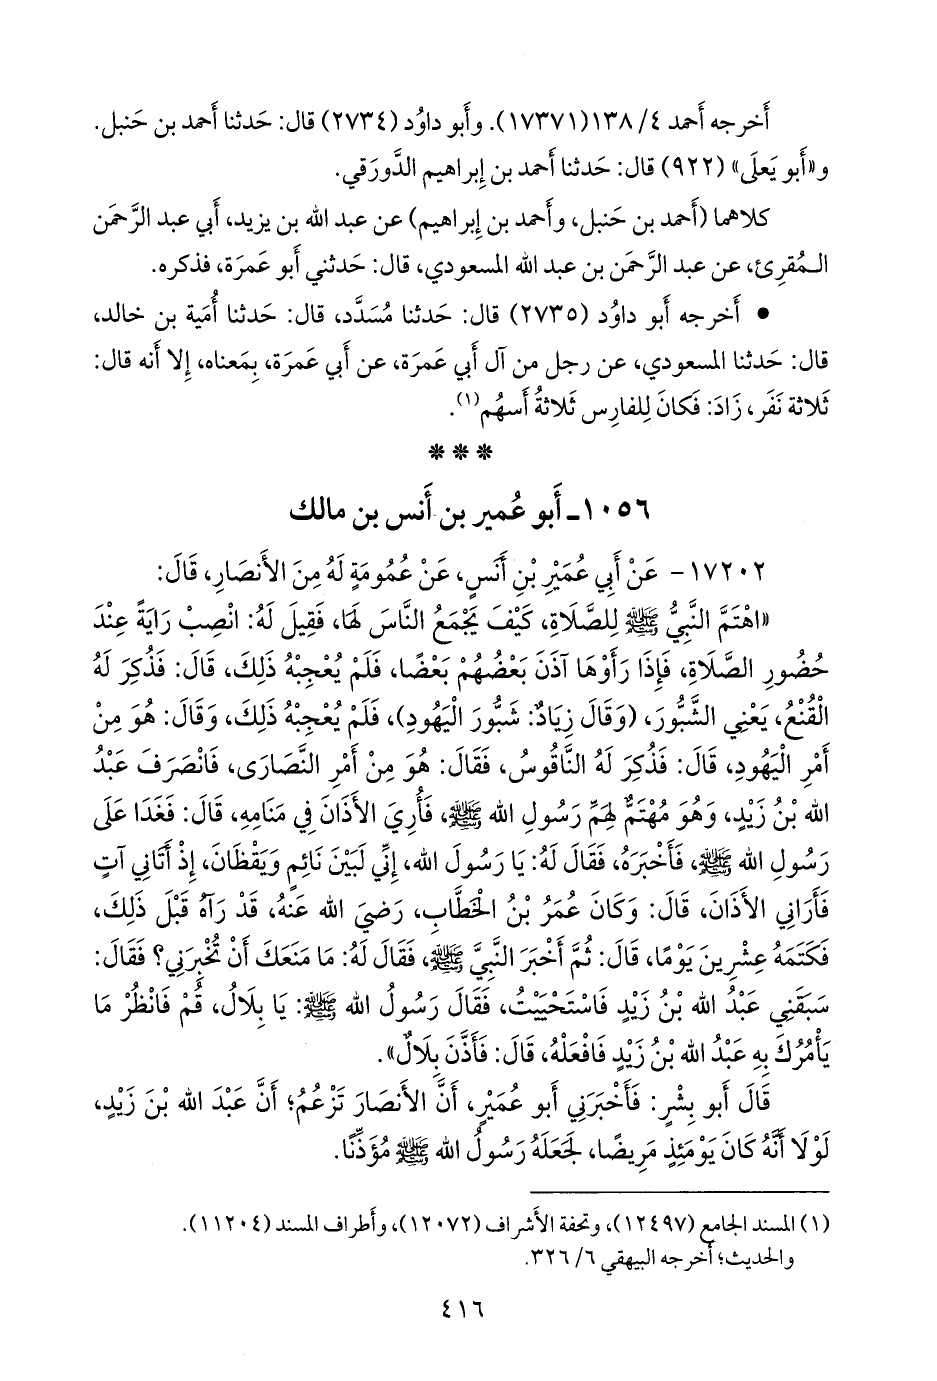 أَخرجه أَحمد ٤/ ١٣٨(١٧٣٧١). وأَبو داوُد (٢٧٣٤) قال: حَدثنا أَحمد بن حَنبل.
و«أَبو يَعلَى» (٩٢٢) قال: حَدثنا أَحمد بن إِبراهيم الدَّورَقي.
كلاهما (أَحمد بن حَنبل، وأَحمد بن إِبراهيم) عن عبد الله بن يزيد، أَبي عبد الرَّحمَن
الـمُقرِئ، عن عبد الرَّحمَن بن عبد الله المسعودي، قال: حَدثني أَبو عَمرَة، فذكره.
• أَخرجه أَبو داوُد (٢٧٣٥) قال: حَدثنا مُسَدَّد، قال: حَدثنا أُمَية بن خالد،
قال: حَدثنا المسعودي، عن رجل من آل أَبي عَمرَة، عن أَبي عَمرَة، بِمَعناه، إِلا أَنه قال:
ثَلاثة نَفَر، زَادَ: فَكانَ لِلفارِس ثَلاثةُ أَسهُم(١).
***
١٠٥٦ـ أَبو عُمير بن أَنس بن مالك
١٧٢٠٢- عَنْ أَبي عُمَيْرِ بْنِ أَنَسٍ، عَنْ عُمُومَةٍ لَهُ مِنَ الأَنصَارِ، قَالَ:
«اهْتَمَّ النَّبِيُّ ﷺ لِلصَّلَاةِ، كَيْفَ يَجْمَعُ النَّاسَ لَهَا، فَقِيلَ لَهُ: انْصِبْ رَايَةً عِنْدَ
حُضُورِ الصَّلَاةِ، فَإِذَا رَأَوْهَا آذَنَ بَعْضُهُمْ بَعْضًا، فَلَمْ يُعْجِبْهُ ذَلِكَ، قَالَ: فَذُكِرَ لَهُ
الْقُنْعُ، يَعْنِي الشَّبُّورَ، (وَقَالَ زِيَادٌ: شَبُّورَ الْيَهُودِ)، فَلَمْ يُعْجِبْهُ ذَلِكَ، وَقَالَ: هُوَ مِنْ
أَمْرِ الْيَهُودِ، قَالَ: فَذُكِرَ لَهُ النَّاقُوسُ، فَقَالَ: هُوَ مِنْ أَمْرِ النَّصَارَى، فَانْصَرَفَ عَبْدُ
الله بْنُ زَيْدٍ، وَهُوَ مُهْتَمٌّ لِهَمِّ رَسُولِ الله ﷺ، فَأُرِيَ الأَذَانَ فِي مَنَامِهِ، قَالَ: فَغَدَا عَلَى
رَسُولِ الله ﷺ، فَأَخْبَرَهُ، فَقَالَ لَهُ: يَا رَسُولَ الله، إِنِّي لَبَيْنَ نَائِمٍ وَيَقْظَانَ، إِذْ أَتَانِي آتٍ
فَأَرَانِي الأَذَانَ، قَالَ: وَكَانَ عُمَرُ بْنُ الْخَطَّابِ، رَضِيَ الله عَنهُ، قَدْ رَآهُ قَبْلَ ذَلِكَ،
فَكَتَمَهُ عِشْرِينَ يَوْمًا، قَالَ: ثُمَّ أَخْبَرَ النَّبِيَّ ﷺ، فَقَالَ لَهُ: مَا مَنَعَكَ أَنْ تُخْبِرَنِي؟ فَقَالَ:
سَبَقَنِي عَبْدُ الله بْنُ زَيْدٍ فَاسْتَحْيَيْتُ، فَقَالَ رَسُولُ الله ﷺ: يَا بِلَالُ، قُمْ فَانْظُرْ مَا
يَأْمُرُكَ بِهِ عَبْدُ الله بْنُ زَيْدٍ فَافْعَلْهُ، قَالَ: فَأَذَّنَ بِلَالٌ».
قَالَ أَبو بِشْرٍ: فَأَخْبَرَنِي أَبو عُمَيْرٍ، أَنَّ الأَنصَارَ تَزْعُمُ؛ أَنَّ عَبْدَ الله بْنَ زَيْدٍ،
لَوْلَا أَنَّهُ كَانَ يَوْمَئِذٍ مَرِيضًا، لَجَعَلَهُ رَسُولُ الله ﷺ مُؤَذِّنًا.
(١) المسند الجامع (١٢٤٩٧)، وتحفة الأَشراف (١٢٠٧٢)، وأَطراف المسند (١١٢٠٤).
والحديث؛ أَخرجه البيهقي ٦/ ٣٢٦.
٤١٦